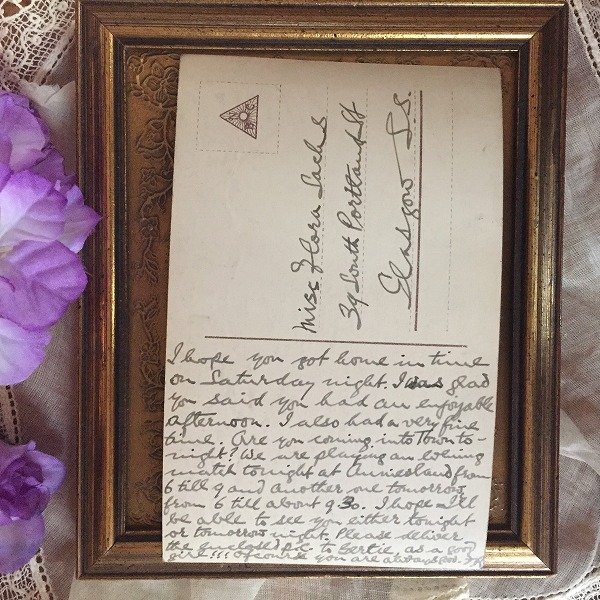 Miss Flora Sachs
39 South Portland St
Glasgow S.S.
I hope you got home in time
on Saturday night. I was glad
you said you had an enjoyable
afternoon. I also had a very fine
time. Are you coming into Town to-
night? We are playing an evening
match tonight at Anniesland from
6 till 9 and another one tomorrow
from 6 till about 9 30. I hope I'll
be able to see you either tonight
or tomorrow night. Please deliver
the enclosed P.C. to Bertie, as a good
girl!!! Of course you are always